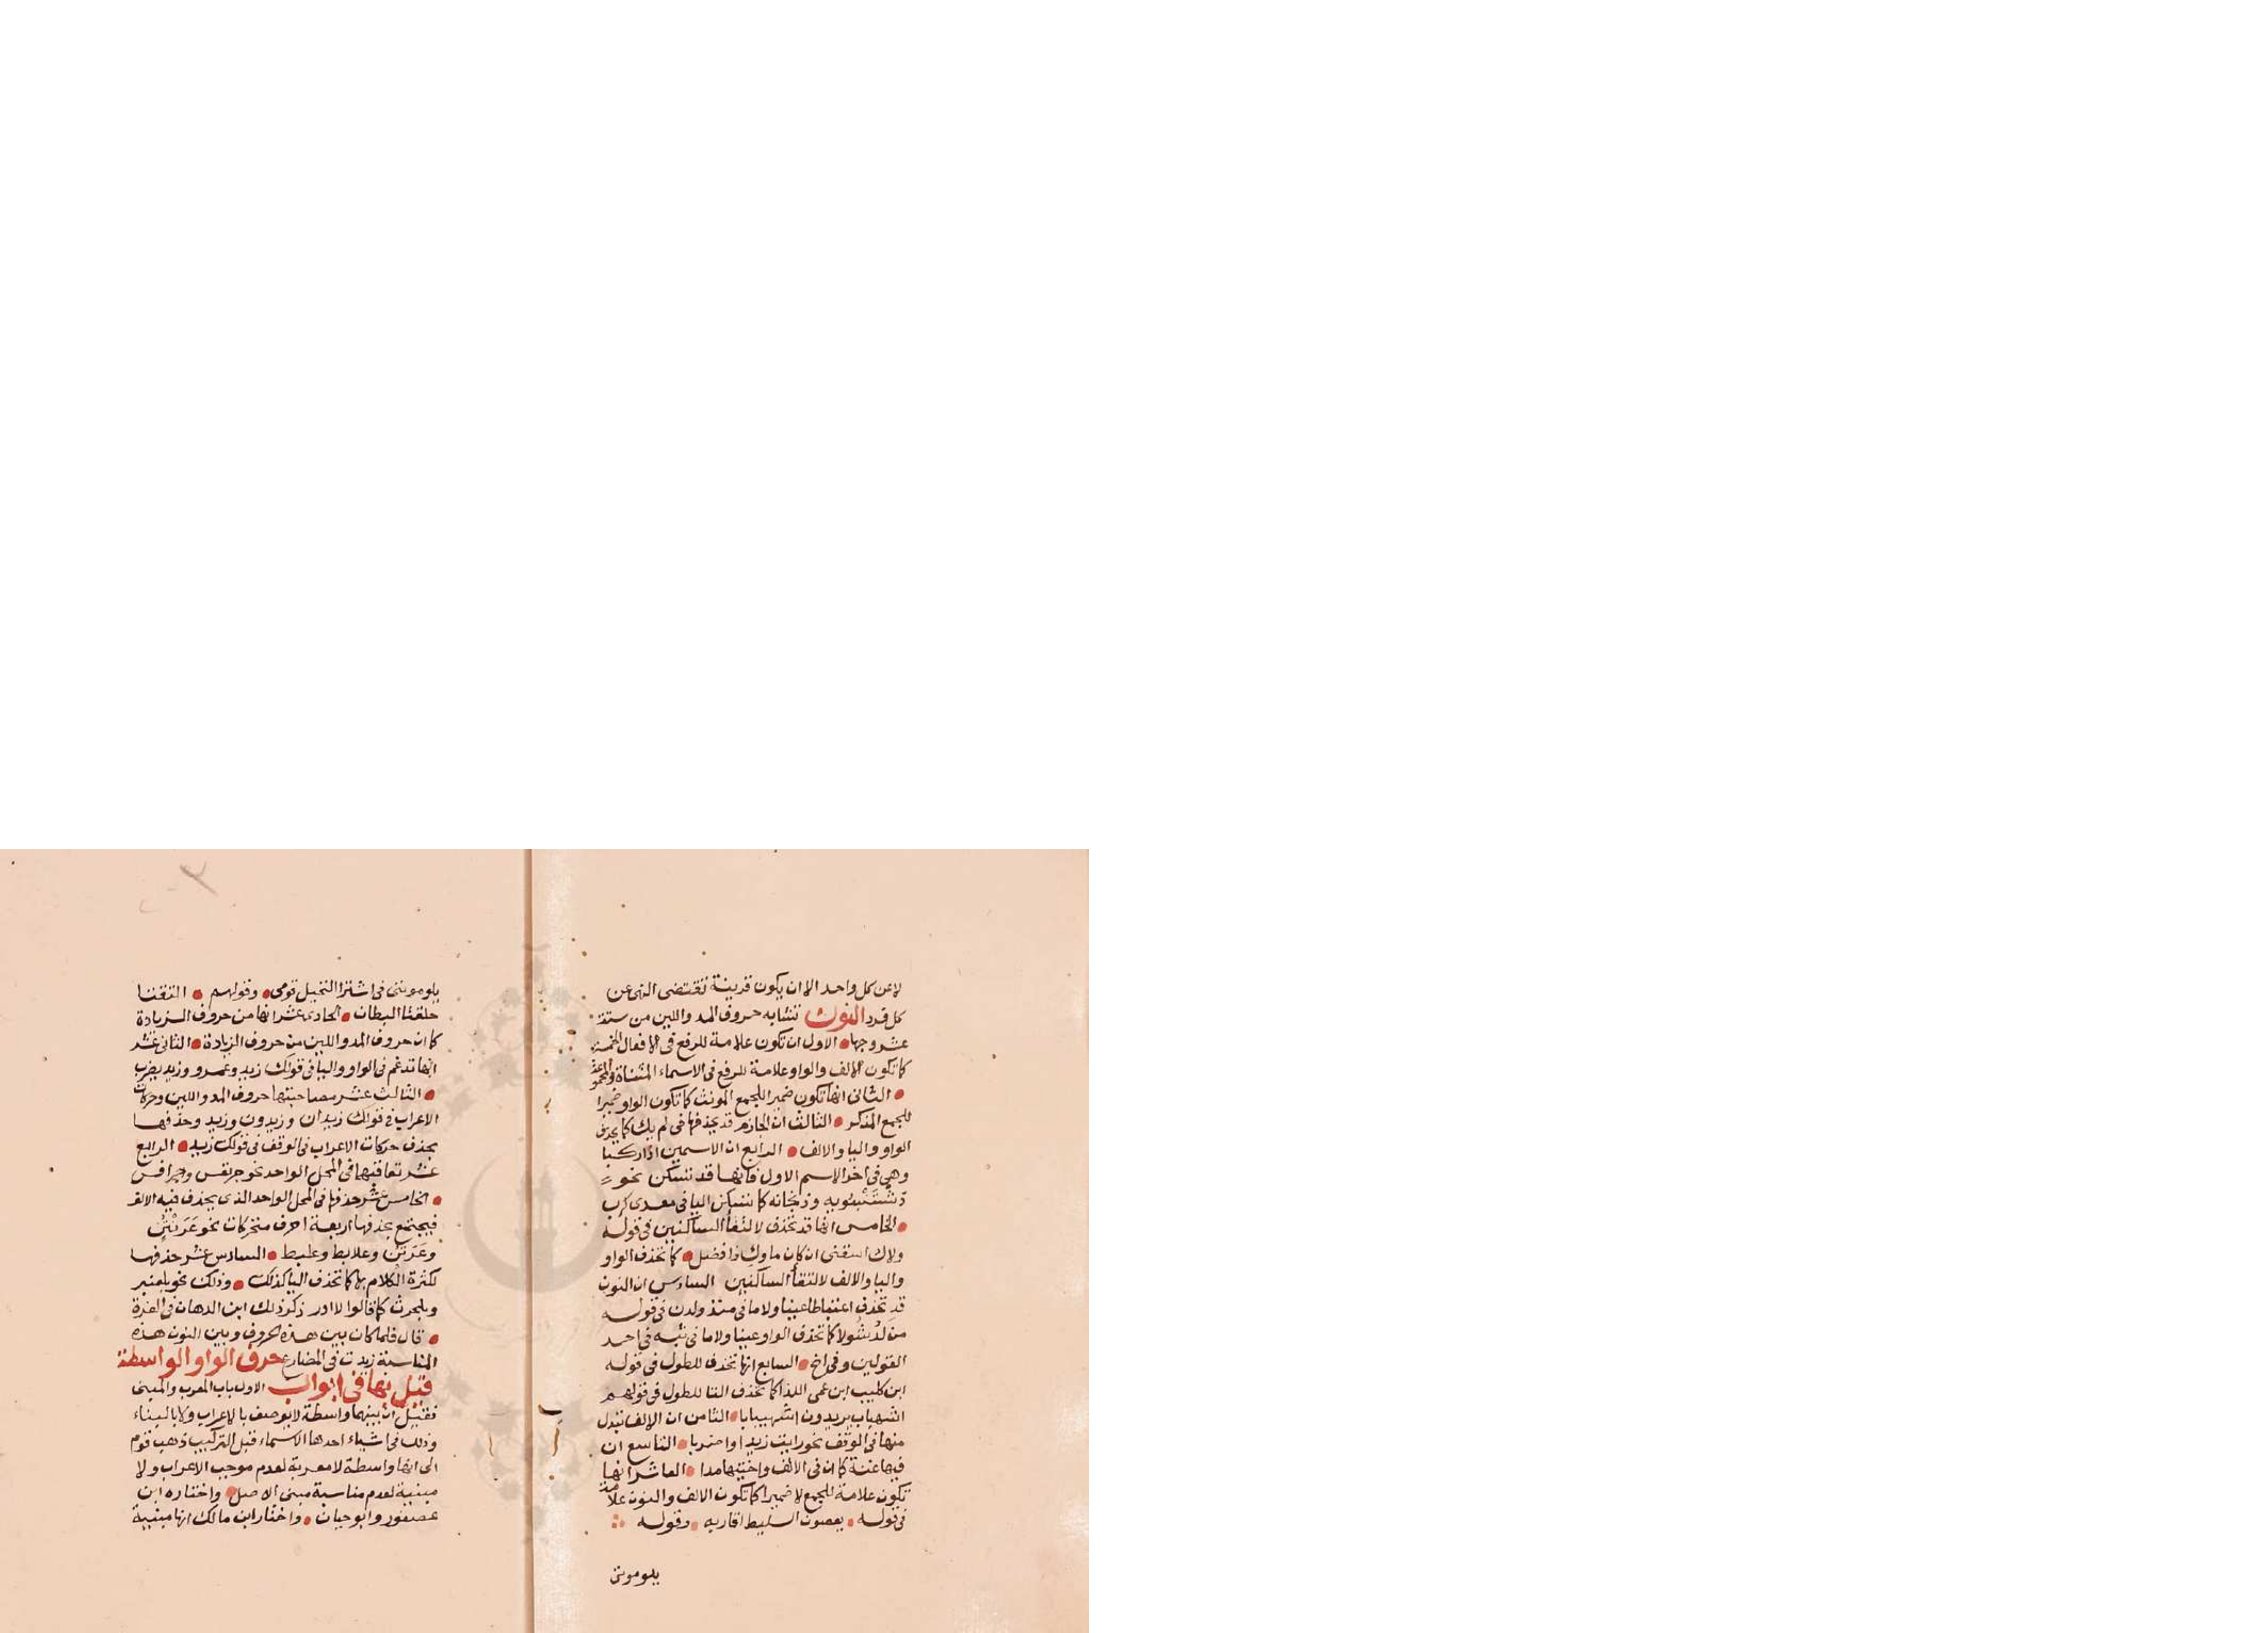 لا عن كل واحد الا ان يكون قرينة تقتضى النهى عن
كل فرد النون تشابه حروف المد واللين من ستة
عشر وجها الاول ان تكون علامة للرفع فى الافعال الخمسة
كما تكون الالف والواو علامة للرفع فى الاسماء المثناة والمجموعة
الثانى انها تكون ضميرا للجمع المونث كما تكون الواو ضميرا
للجمع المذكر الثالث ان الجازم قد يحذفها فى لم يك كما يحذف
الواو واليا والالف الرابع ان الاسمين اذا ركبا
وهى فى اخر الاسم الاول فانها قد تسكن نحو
دستنبويه وذنجانه كما تسكن اليا فى معدى كرب
الخامس انها قد تحذف لالتقأ الساكنين فى قوله
ولاك استقنى ان كان ماوك ذا فضل كما تحذف الواو
واليا والالف لالتقأ الساكنين السادس ان النون
قد تحذف اعتباطا عينا ولاما فى منذ ولدن فى قوله
من لد شولا كما تحذف الواو عينا ولاما فى ثبه فى احد
القولين وفى اخ السابع انها تحذف للطول فى قوله
ابن كليب ابن عمى اللذا كما تحذف التا للطول فى قولهم
اشهباب يريدون اشهيبابا الثامن ان الالف تبدل
منها فى الوقف نحو رايت زيدا واضربا التاسع ان
فيها غنة كما ان فى الالف واختيها مدا العاشر انها
تكون علامة للجمع لا ضميرا كما تكون الالف والنون علامة
فى قوله يعصرن السليط اقاربه وقوله
يلوموننى
يلوموننى فى اشترا النخيل قومى وقولهم التقتا
حلقتا البطان الحادى عشر انها من حروف الزيادة
كما ان حروف المد واللين من حروف الزيادة الثانى عشر
انها تدغم فى الواو واليا فى قولك زيد وعمرو وزيد يضرب
الثالث عشر مصاحبتها حروف المد واللين وحركات
الاعراب فى قولك زيدان وزيدون وزيد وحذفها
بحذف حركات الاعراب فى الوقف فى قولك زيد الرابع
عشر تعاقبها فى المحل الواحد نحو جرنفس وجرافس
الخامس عشر حذفها فى المحل الواحد الذى يحذف فيه الالف
فيجتمع بحذفها اربعة احرف متحركات نحو عرنتن
وعرتن وعلابط وعلبط السادس عشر حذفها
لكثرة الكلام بها كما تحذف اليا كذلك وذلك نحو بلعنبر
وبلحرث كما قالوا لا ادر ذكر ذلك ابن الدهان فى الغرة
قال فلما كان بين هذه الحروف وبين النون هذه
المناسبة زيدت فى المضارع حرف الواو الواسطة
قيل بها فى ابواب الاول باب المعرب والمبنى
فقيل ان بينهما واسطة لا يوصف بالاعراب ولا بالبناء
وذلك فى اشياء احدها الاسماء قبل التركيب ذهب قوم
الى انها واسطة لا معربة لعدم موجب الاعراب ولا
مبنية لعدم مناسبة مبنى الاصل واختاره ابن
عصفور وابو حيان واختار ابن مالك انها مبنية